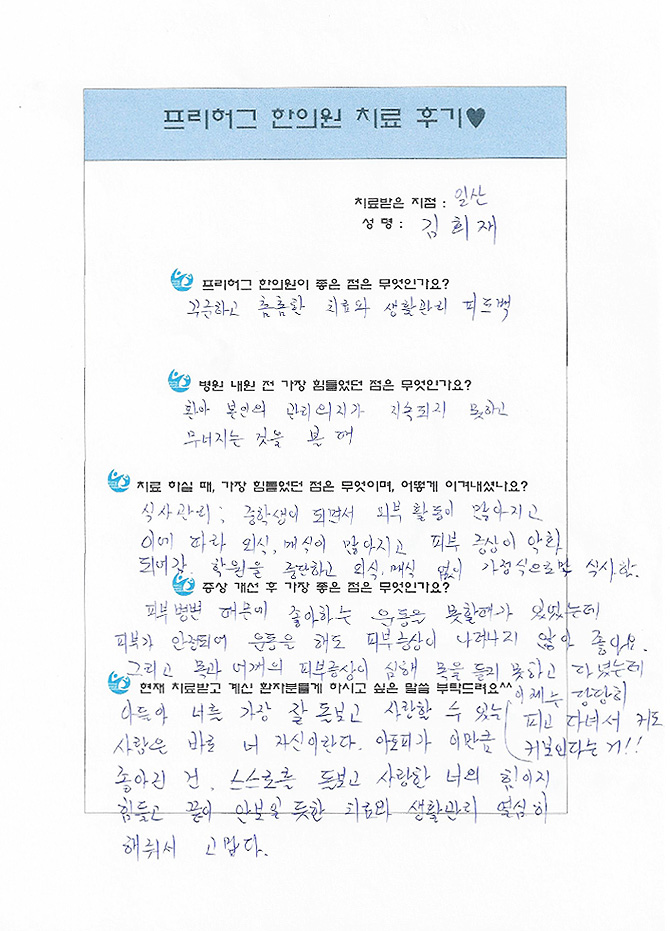 프리허그 한의원 치료 후기♥
치료받은 지점 : 일산
성 명 : 김희재
프리허그 한의원이 좋은 점은 무엇인가요?
꾸준하고 촘촘한 치료와 생활관리 피드백
병원 내원 전 가장 힘들었던 점은 무엇인가요?
환아 본인의 관리의지가 지속되지 못하고
무너지는 것을 볼 때
치료 하실 때, 가장 힘들었던 점은 무엇이며, 어떻게 이겨내셨나요?
식사관리; 중학생이 되면서 외부 활동이 많아지고
이에 따라 외식, 매식이 많아지고 피부 증상이 악화
되어감. 학원을 중단하고 외식, 매식 없이 가정식으로만 식사함.
증상 개선 후 가장 좋은 점은 무엇인가요?
피부병변 때문에 좋아하는 운동을 못할때가 있었는데
피부가 안정되어 운동을 해도 피부증상이 나타나지 않아 좋아요.
그리고 목과 어깨의 피부증상이 심해 목을 들지 못하고 다녔는데
이제는 당당히
피고 다녀서 키도
커보인다는 거!!
현재 치료받고 계신 환자분들게 하시고 싶은 말씀 부탁드려요^^
아들아 너를 가장 잘 돌보고 사랑할 수 있는
사람은 바로 너 자신이란다. 아토피가 이만큼
좋아진 건, 스스로를 돌보고 사랑한 너의 힘이지
힘들고 끝이 안보일 듯한 치료와 생활관리 열심히
해줘서 고맙다.